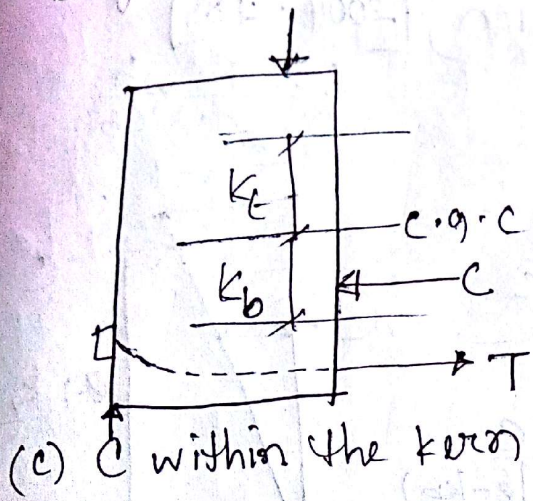 Kt
c.g.c
Kb
C
T
(c) C within the kern